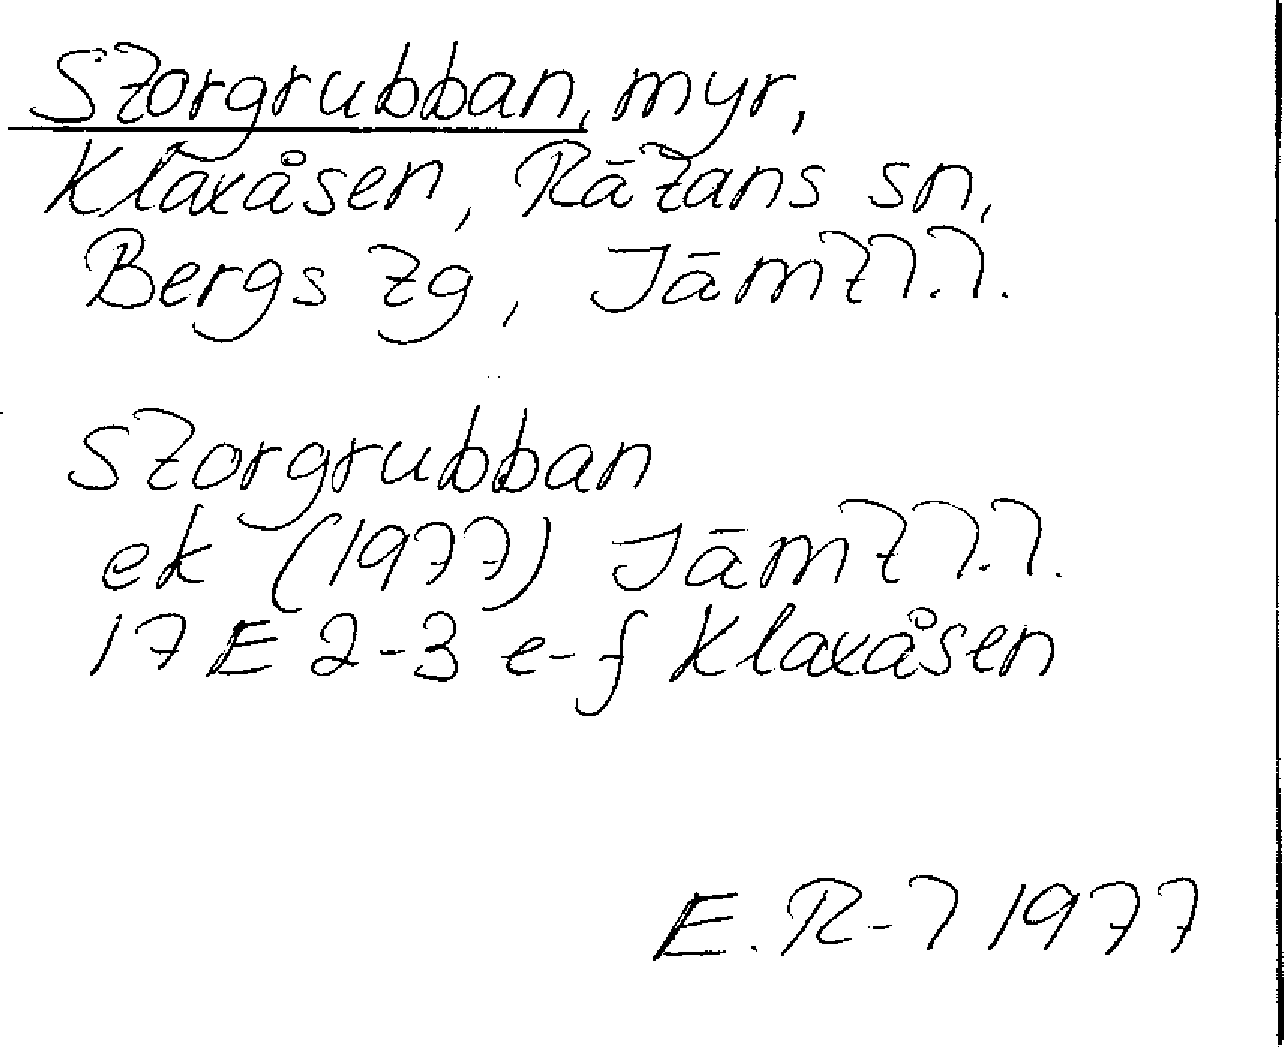 Storgrubban, myr,
Klaxåsen, Rätans sn,
Bergs tg, Jämtl.l.
Storgrubban
ek (1977) Jämtl.l.
17 E 2-3 e-f Klaxåsen
E. R-l 1977